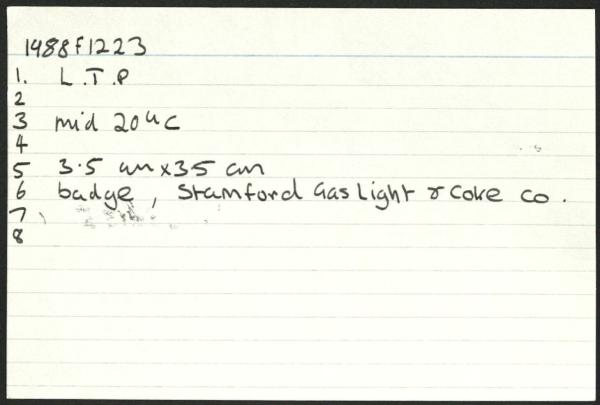 1488f1223
1. L.T.P
2
3 mid 20th C
4
5 3.5 cm x 35 cm
6 badge, Stamford Gas Light & Coke co.
7
8